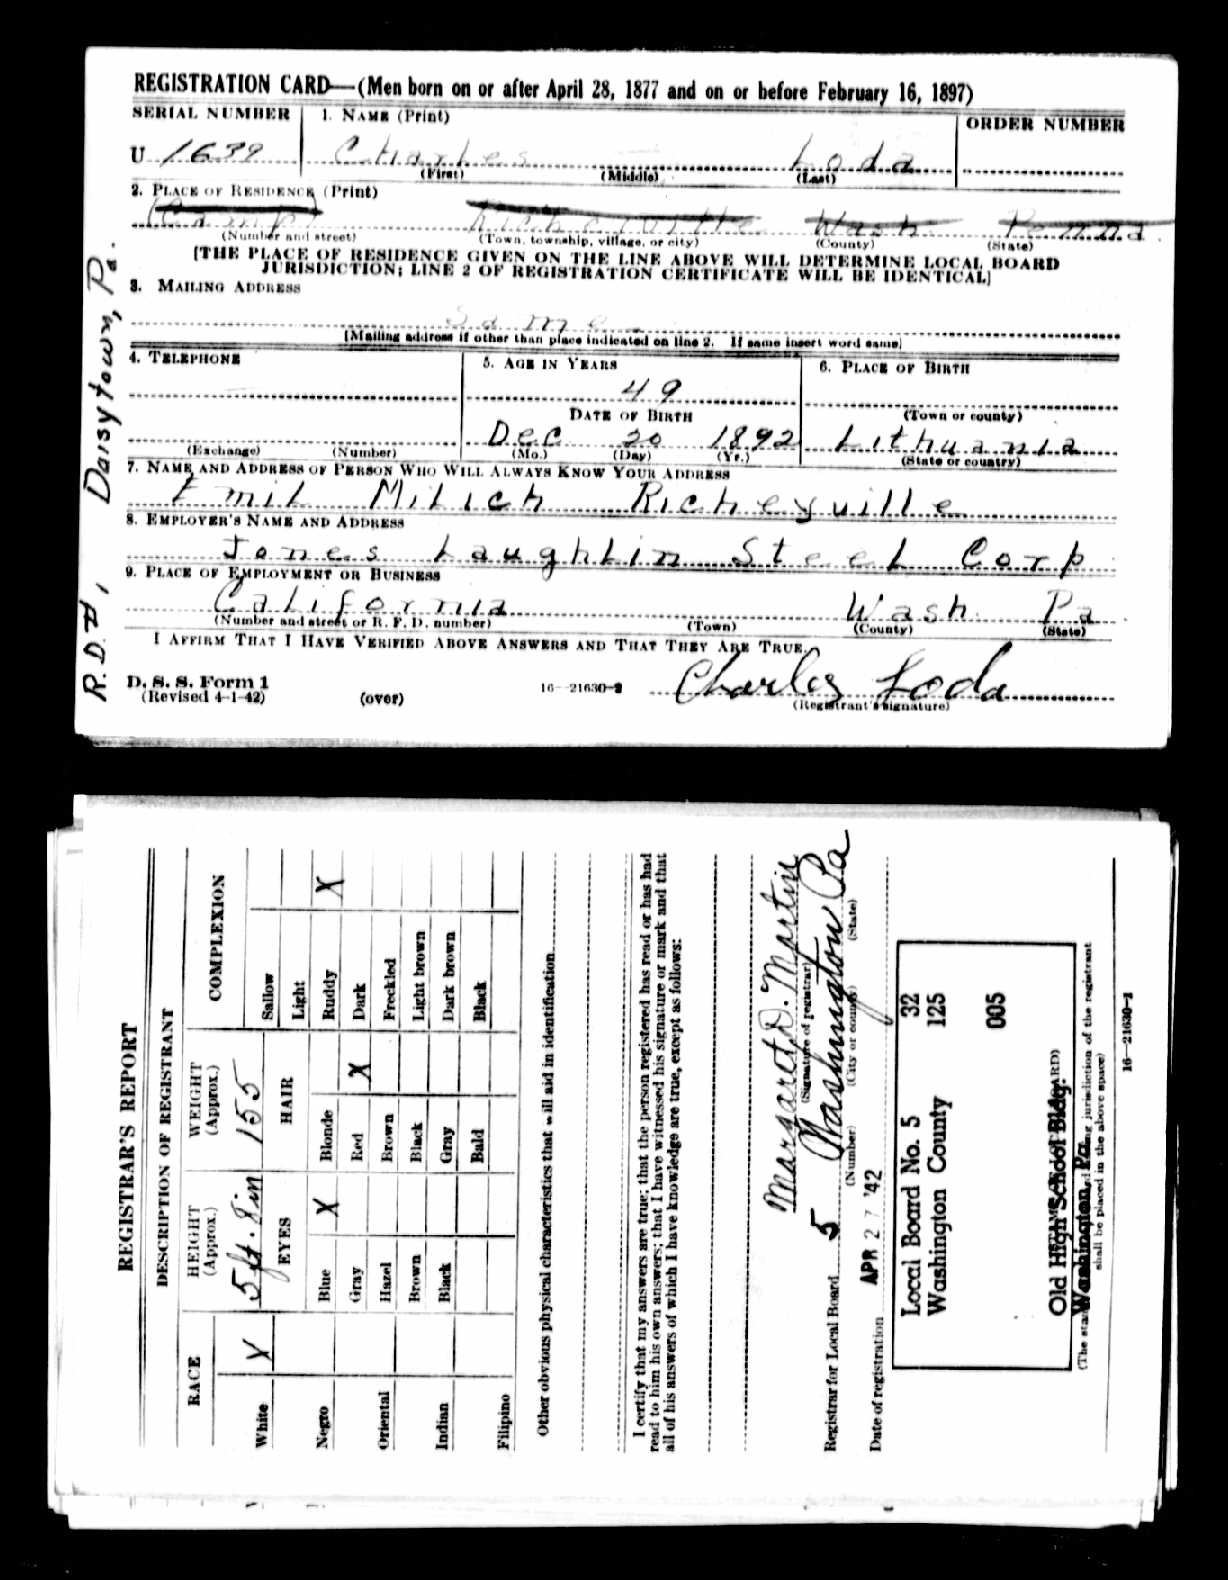 REGISTRATION CARD—(Men born on or after April 28, 1877 and on or before February 16, 1897)
SERIAL NUMBER 1. NAME (Print) ORDER NUMBER
U 1639 Charles — Loda
(First) (Middle) (Last)
2. PLACE OF RESIDENCE (Print)
(Camp) Richeyville Wash Penna.
(Number and street) (Town, township, village, or city) (County) (State)
[THE PLACE OF RESIDENCE GIVEN ON THE LINE ABOVE WILL DETERMINE LOCAL BOARD
JURISDICTION; LINE 2 OF REGISTRATION CERTIFICATE WILL BE IDENTICAL]
3. MAILING ADDRESS
Same
[Mailing address if other than place indicated on line 2. If same insert word same]
4. TELEPHONE 5. AGE IN YEARS 6. PLACE OF BIRTH
49
DATE OF BIRTH (Town or county)
Dec 20 1892 Lithuania
(Exchange) (Number) (Mo.) (Day) (Yr.) (State or country)
7. NAME AND ADDRESS OF PERSON WHO WILL ALWAYS KNOW YOUR ADDRESS
Emil Milich Richeyville
8. EMPLOYER'S NAME AND ADDRESS
Jones Laughlin Steel Corp
9. PLACE OF EMPLOYMENT OR BUSINESS
California Wash. Pa
(Number and street or R. F. D. number) (Town) (County) (State)
I AFFIRM THAT I HAVE VERIFIED ABOVE ANSWERS AND THAT THEY ARE TRUE.
D. S. S. Form 1
(Revised 4-1-42) (over) 16—21630-2 Charles Loda
(Registrant's signature)
R.D.#1 Daisytown, Pa.
REGISTRAR'S REPORT
DESCRIPTION OF REGISTRANT
RACE HEIGHT (Approx.) WEIGHT (Approx.) COMPLEXION
5 ft. 8 in 155
White X EYES HAIR Sallow
Light
Negro Blue X Blonde Ruddy X
Gray Red X Dark
Oriental Hazel Brown Freckled
Brown Black Light brown
Indian Black Gray Dark brown
Filipino Bald Black
Other obvious physical characteristics that will aid in identification
I certify that my answers are true; that the person registered has read or has had
read to him his own answers; that I have witnessed his signature or mark and that
all of his answers of which I have knowledge are true, except as follows:
Margaret D. Martin
(Signature of registrar)
Registrar for Local Board 5 Washington Pa
(Number) (City or county) (State)
Date of registration APR 27 '42
Local Board No. 5 32
Washington County 125
005
Old High School Bldg.
Washington, Pa.
(The stamp jurisdiction of the registrant
shall be placed in the above space)
16—21630-1